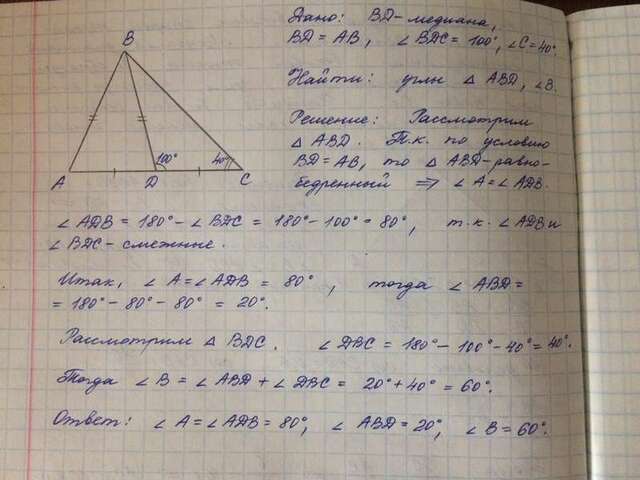 Дано: BD - медиана,
BD = AB, ∠BDC = 100°, ∠C = 40°.
Найти: углы △ABD, ∠B.
Решение: Рассмотрим
△ABD. Т.к. по условию
BD = AB, то △ABD - равно-
бедренный ⇒ ∠A = ∠ADB.
B
100°
40°
A
D
C
∠ADB = 180° - ∠BDC = 180° - 100° = 80°, т.к. ∠ADB и
∠BDC - смежные.
Итак, ∠A = ∠ADB = 80°, тогда ∠ABD =
= 180° - 80° - 80° = 20°.
Рассмотрим △BDC. ∠DBC = 180° - 100° - 40° = 40°.
Тогда ∠B = ∠ABD + ∠DBC = 20° + 40° = 60°.
Ответ: ∠A = ∠ADB = 80°, ∠ABD = 20°, ∠B = 60°.